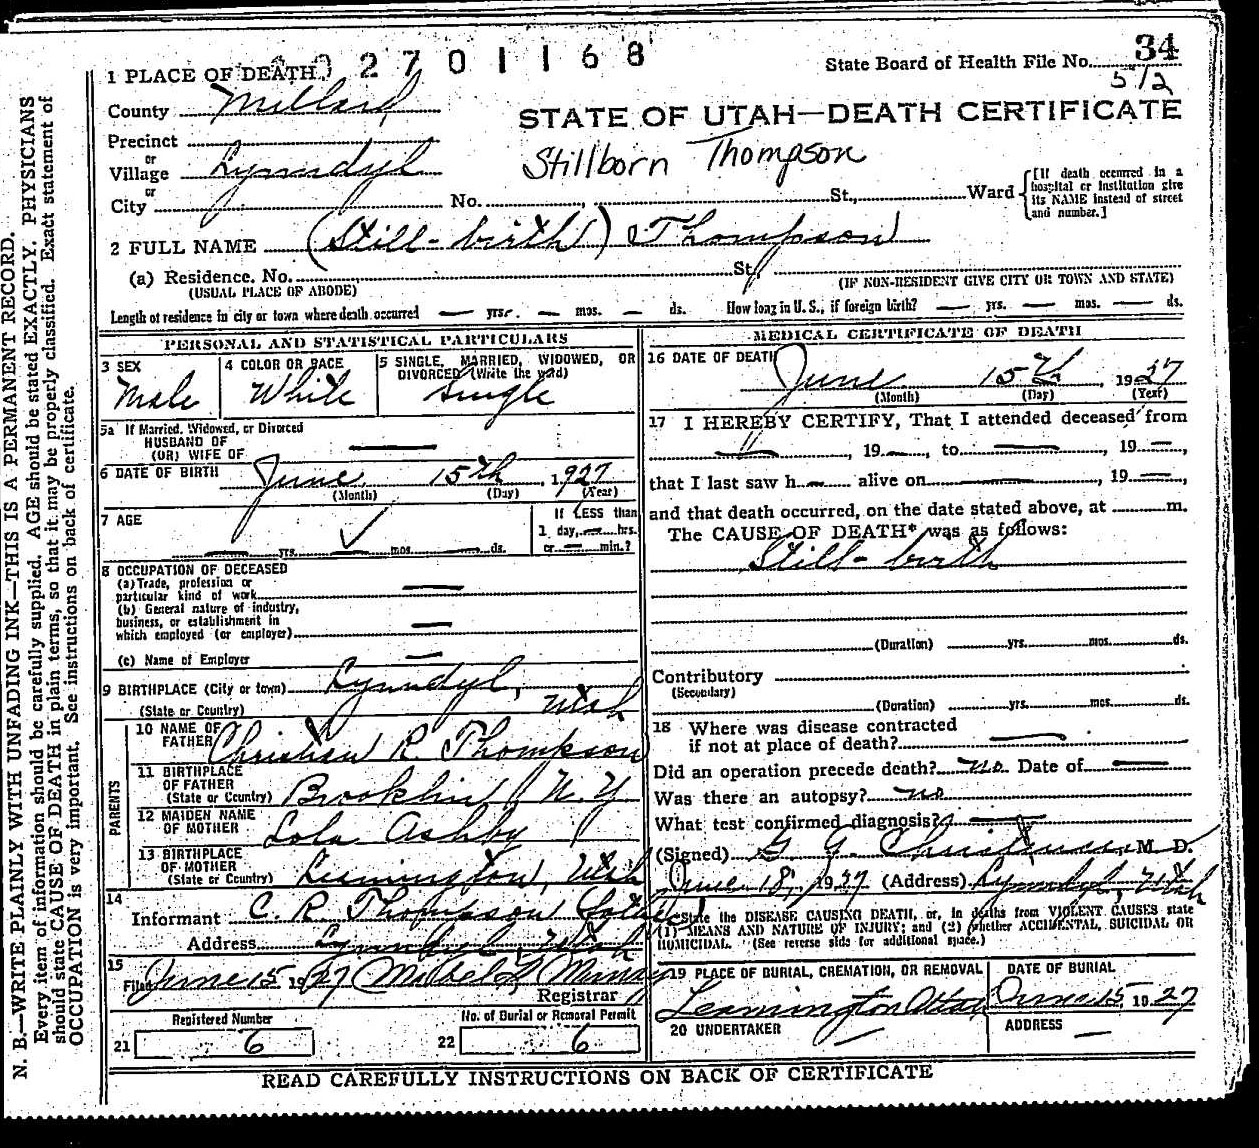 2 7 0 1 1 6 8
State Board of Health File No. 34
512
1 PLACE OF DEATH
County Millard
STATE OF UTAH—DEATH CERTIFICATE
Precinct
or
Village Lynndyl
Stillborn Thompson
or
City No. St., Ward
[If death occurred in a hospital or institution give its NAME instead of street and number.]
2 FULL NAME (Still-birth) Thompson
(a) Residence, No. St.,
(USUAL PLACE OF ABODE) (IF NON-RESIDENT GIVE CITY OR TOWN AND STATE)
Length of residence in city or town where death occurred — yrs. — mos. — ds. How long in U. S., if foreign birth? — yrs. — mos. — ds.
PERSONAL AND STATISTICAL PARTICULARS
3 SEX
Male
4 COLOR OR RACE
White
5 SINGLE, MARRIED, WIDOWED, OR
DIVORCED (Write the word)
Single
5a If Married, Widowed, or Divorced
HUSBAND OF
(OR) WIFE OF —
6 DATE OF BIRTH June 15th, 1927
(Month) (Day) (Year)
7 AGE
— yrs. — mos. — ds.
If LESS than
1 day, — hrs.
or — min.?
8 OCCUPATION OF DECEASED
(a) Trade, profession or
particular kind of work —
(b) General nature of industry,
business, or establishment in
which employed (or employer) —
(c) Name of Employer —
9 BIRTHPLACE (City or town) Lynndyl,
(State or Country) Utah
PARENTS
10 NAME OF
FATHER Christian R. Thompson
11 BIRTHPLACE
OF FATHER
(State or Country) Brooklin, N. Y.
12 MAIDEN NAME
OF MOTHER Lola Ashby
13 BIRTHPLACE
OF MOTHER
(State or Country) Leamington, Utah
14
Informant C. R. Thompson father
Address Lynndyl, Utah
15
Filed June 15 1927 Mabel Murray
Registrar
Registered Number
21 6
No. of Burial or Removal Permit
22 6
MEDICAL CERTIFICATE OF DEATH
16 DATE OF DEATH
June 15th, 1927
(Month) (Day) (Year)
17 I HEREBY CERTIFY, That I attended deceased from
, 19—, to —, 19—,
that I last saw h— alive on —, 19—
and that death occurred, on the date stated above, at m.
The CAUSE OF DEATH* was as follows:
Still-birth
(Duration) yrs. mos. ds.
Contributory
(Secondary)
(Duration) yrs. mos. ds.
18 Where was disease contracted
if not at place of death? —
Did an operation precede death? no Date of —
Was there an autopsy? no
What test confirmed diagnosis? —
(Signed) M. D.
June 18, 1927 (Address) Lynndyl, Utah
*State the DISEASE CAUSING DEATH, or, in deaths from VIOLENT CAUSES state
(1) MEANS AND NATURE OF INJURY; and (2) whether ACCIDENTAL, SUICIDAL OR
HOMICIDAL. (See reverse side for additional space.)
19 PLACE OF BURIAL, CREMATION, OR REMOVAL
Leamington Utah
DATE OF BURIAL
June 15 1927
20 UNDERTAKER
—
ADDRESS
—
READ CAREFULLY INSTRUCTIONS ON BACK OF CERTIFICATE
N. B.—WRITE PLAINLY WITH UNFADING INK—THIS IS A PERMANENT RECORD.
Every item of information should be carefully supplied. AGE should be stated EXACTLY. PHYSICIANS
should state CAUSE OF DEATH in plain terms, so that it may be properly classified. Exact statement of
OCCUPATION is very important. See instructions on back of certificate.